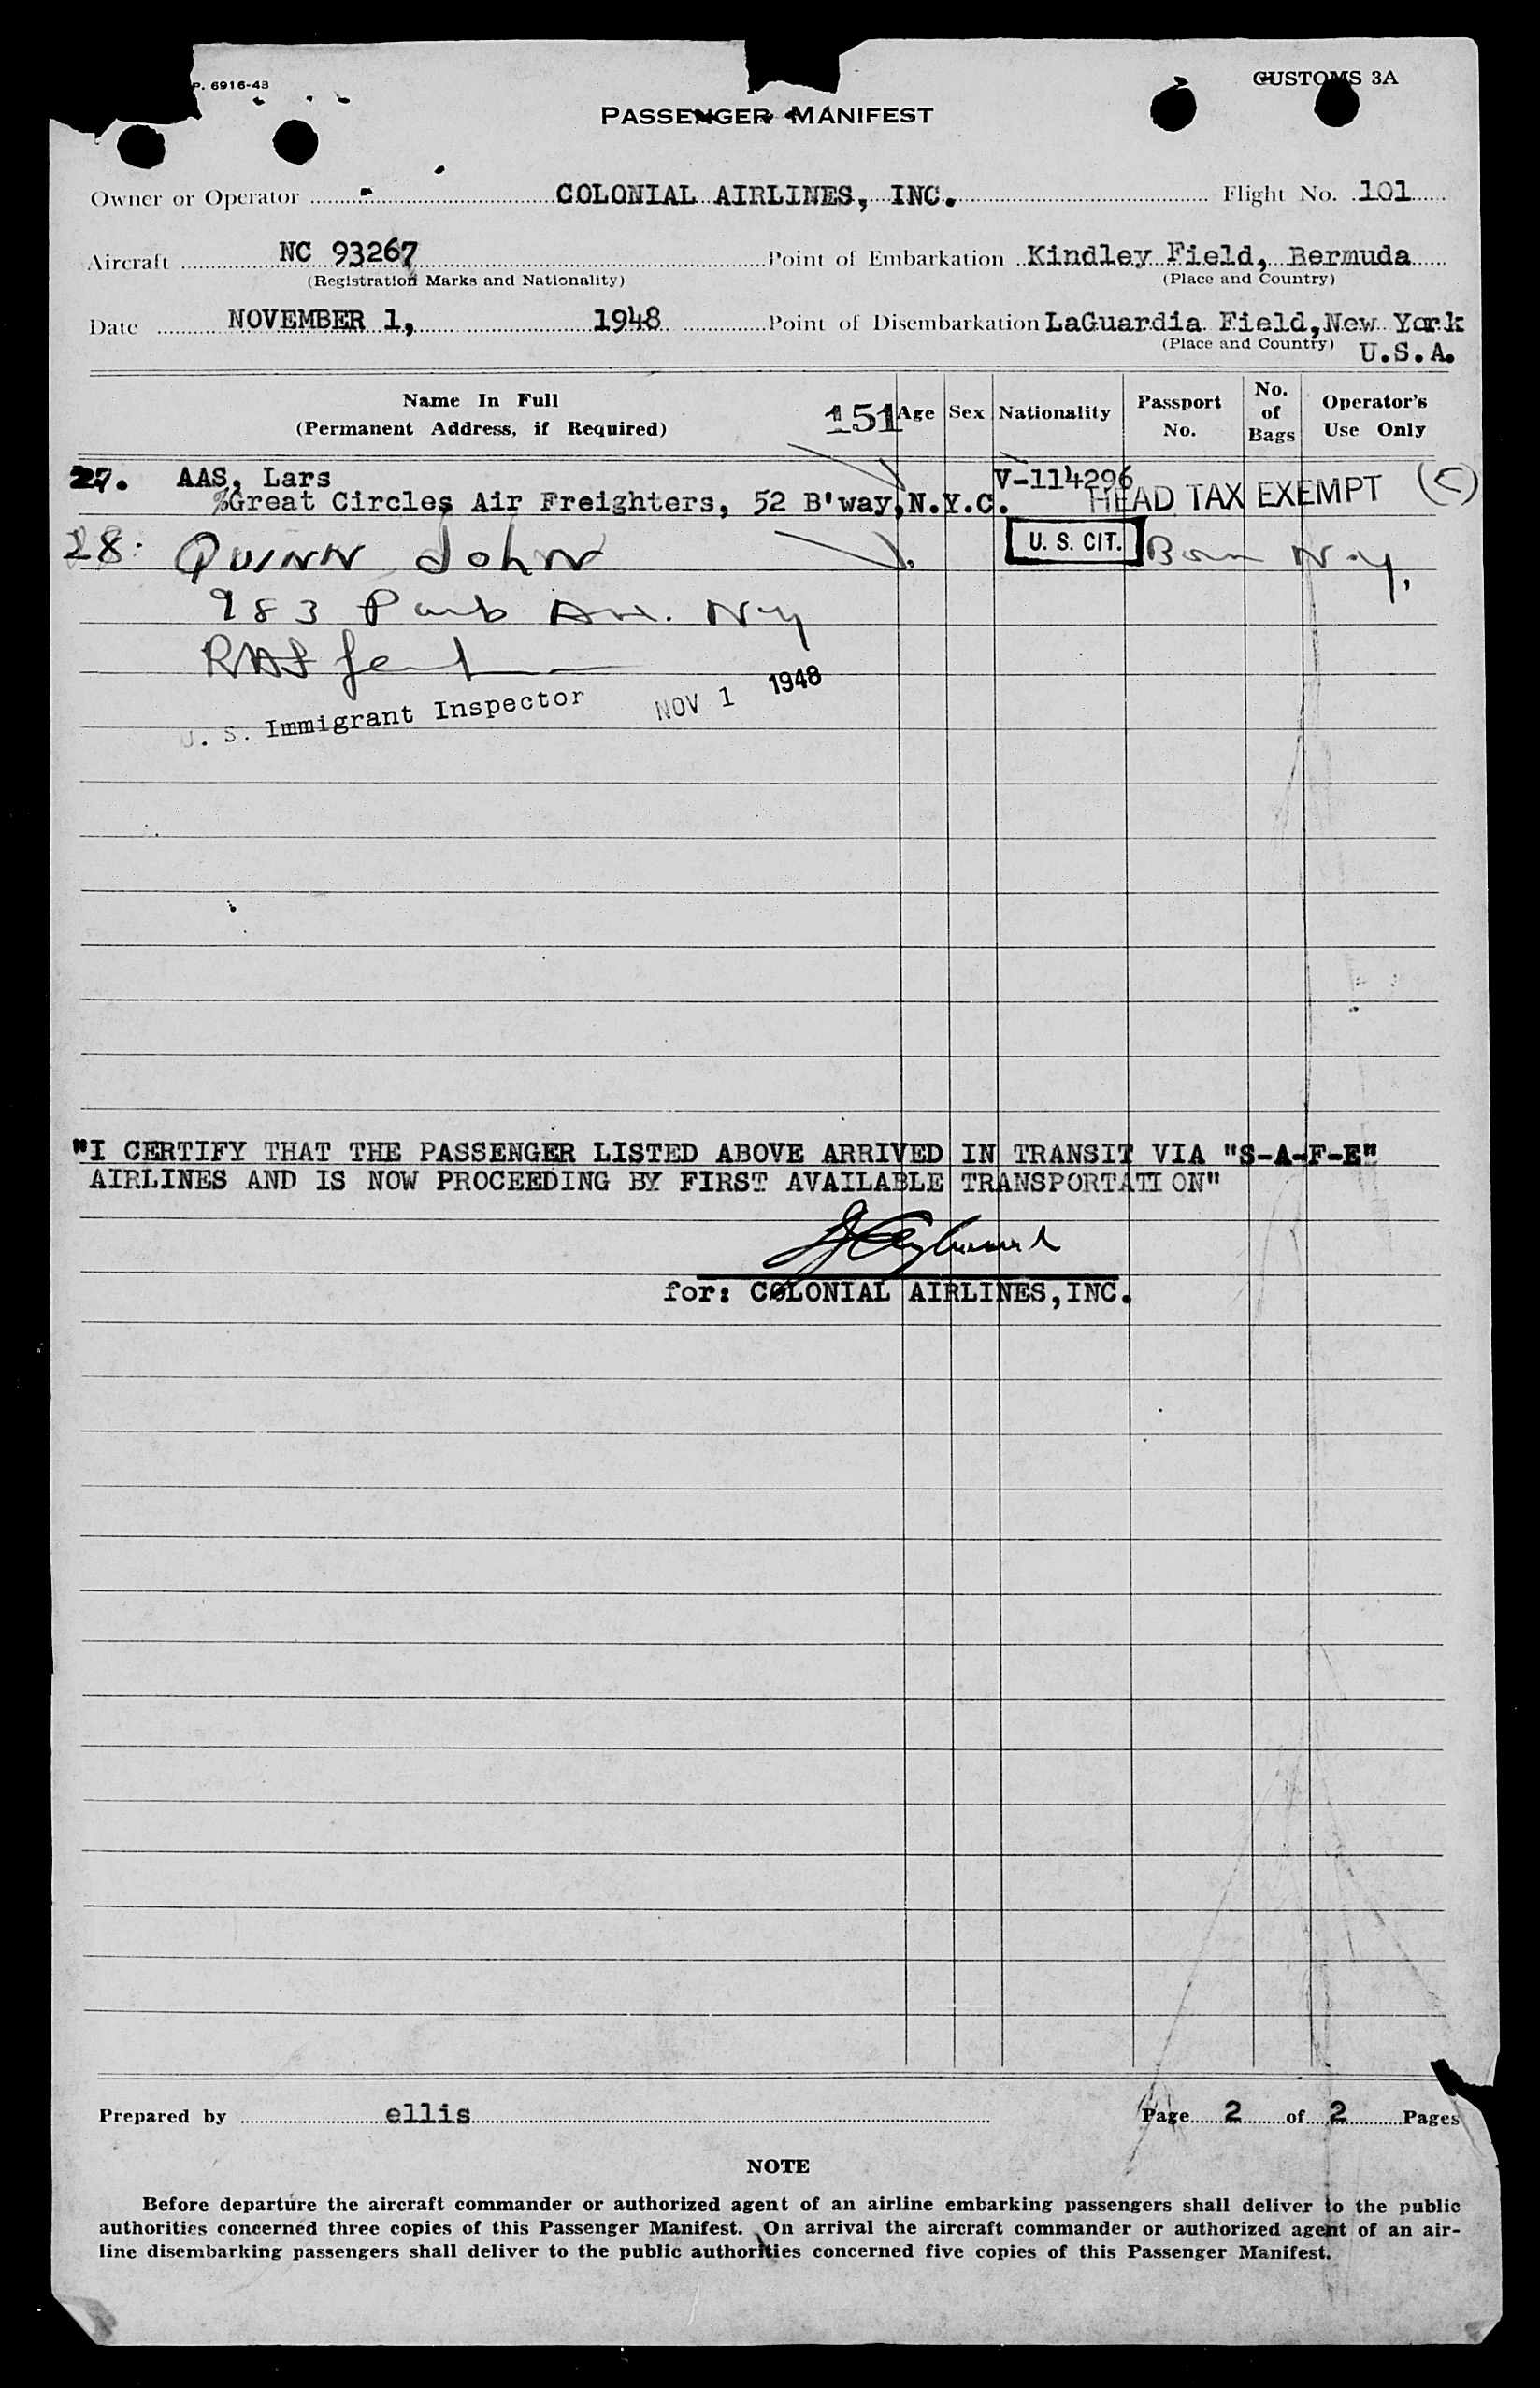 P. 6916-43
CUSTOMS 3A
PASSENGER MANIFEST
Owner or Operator COLONIAL AIRLINES, INC. Flight No. 101
Aircraft NC 93267 Point of Embarkation Kindley Field, Bermuda
(Registration Marks and Nationality) (Place and Country)
Date NOVEMBER 1, 1948 Point of Disembarkation LaGuardia Field, New York
(Place and Country) U.S.A.
Name In Full
(Permanent Address, if Required) 151 Age Sex Nationality Passport No. No. of Bags Operator's Use Only
27. AAS, Lars V-114296
%Great Circles Air Freighters, 52 B'way, N.Y.C. HEAD TAX EXEMPT (C)
28. QUINN John U. S. CIT. Born N.Y.
983 Park Ave. NY
U. S. Immigrant Inspector NOV 1 1948
"I CERTIFY THAT THE PASSENGER LISTED ABOVE ARRIVED IN TRANSIT VIA "S-A-F-E"
AIRLINES AND IS NOW PROCEEDING BY FIRST AVAILABLE TRANSPORTATION"
for: COLONIAL AIRLINES, INC.
Prepared by ellis Page 2 of 2 Pages
NOTE
Before departure the aircraft commander or authorized agent of an airline embarking passengers shall deliver to the public
authorities concerned three copies of this Passenger Manifest. On arrival the aircraft commander or authorized agent of an air-
line disembarking passengers shall deliver to the public authorities concerned five copies of this Passenger Manifest.